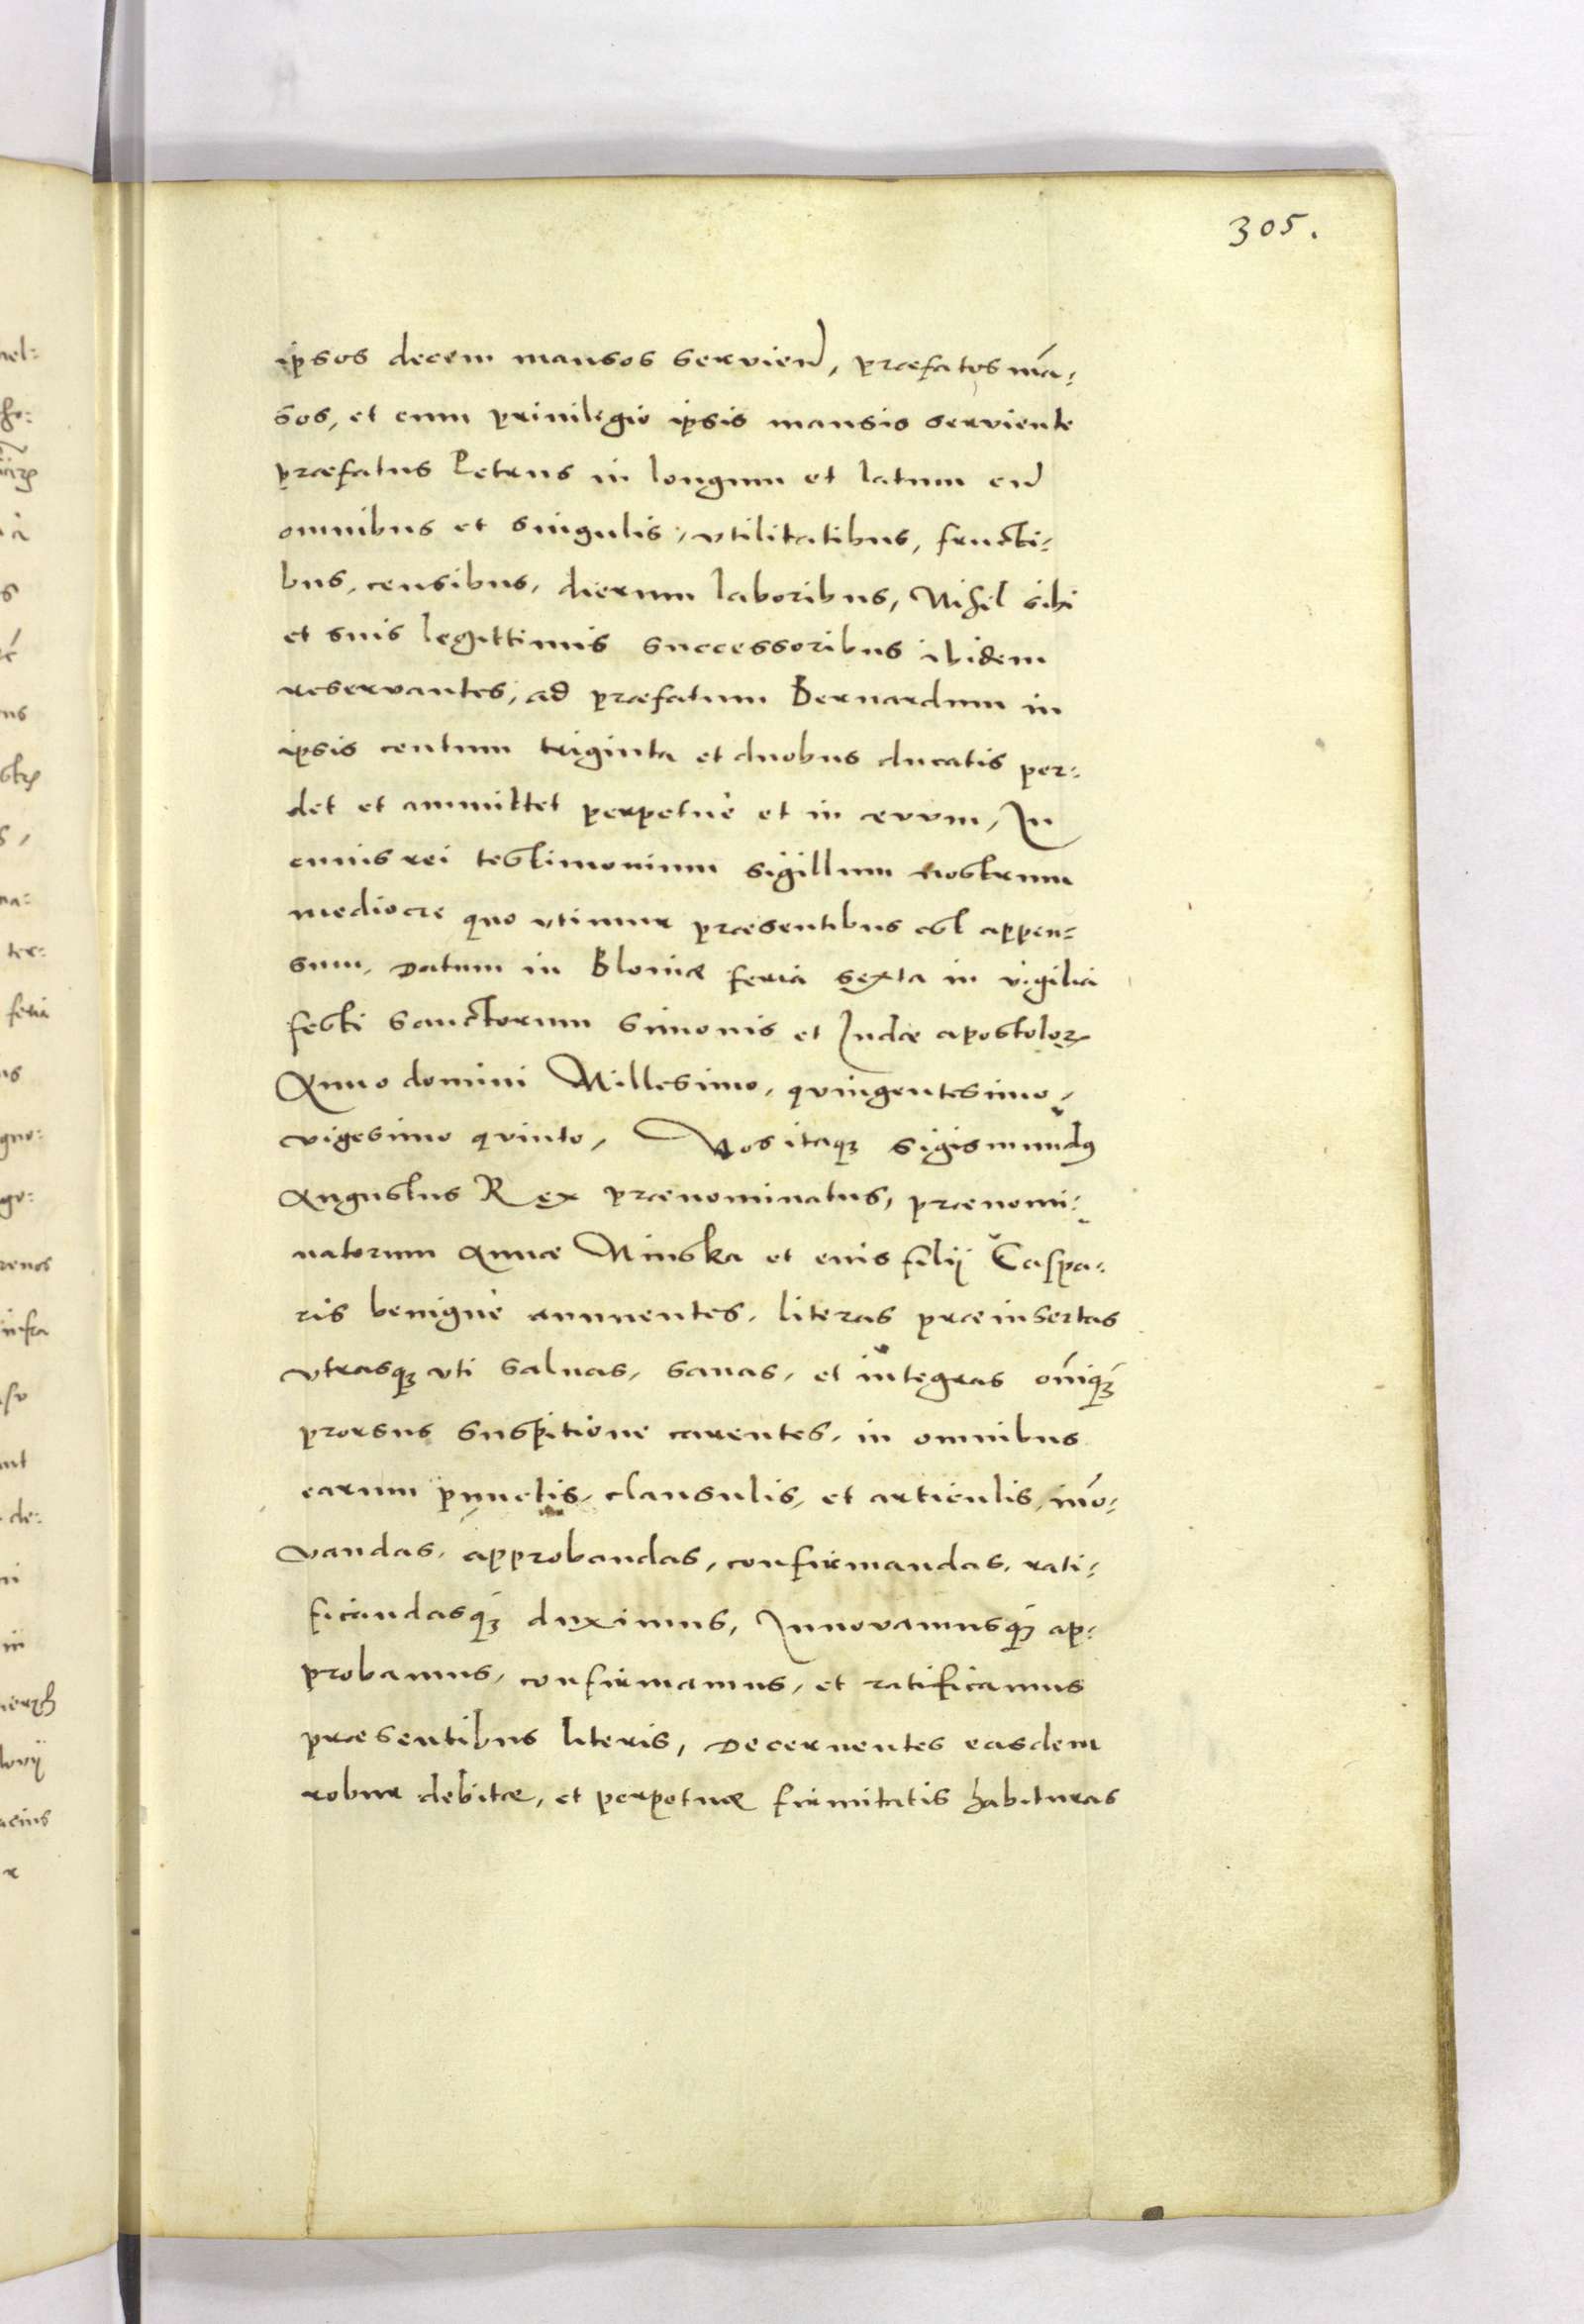 305.
ipsos decem mansos servien̄, præfatos mā-
sos, et cum priuilegio ipsis mansis serviente
præfatus Petrus in longum et latum cū
omnibus et singulis, vtilitatibus, fructi-
bus, censibus, dierum laboribus, Nihil sibi
et suis legittimis successoribus ibidem
reservantes, ad præfatum Bernardum in
ipsis centum triginta et duobus ducatis per-
det et ammittet perpetuè et in ævvm, In
cuius rei testimonium sigillum nostrum
mediocre quo vtimur præsentibus est appen-
sum, Datum in Bloniæ feria sexta in vigilia
festi Sanctorum Simonis et Iudæ apostoloꝝ
Anno domini Millesimo, quingentesimo,
vigesimo quinto, Nos itaqꝫ Sigismundꝰ
Augustus Rex prænominatus, prænomi-
natorum Annæ Minska et eius filij Caspa-
ris benignè annuentes, literas præinsertas
vtrasqꝫ vti saluas, sanas, et integras om̄iqꝫ
prorsus suspitione carentes, in omnibus
earum punctis, clausulis, et articulis, inno-
vandas, approbandas, confirmandas, rati-
ficandasqꝫ duximus, Innovamusqꝫ ap-
probamus, confirmamus, et ratificamus
præsentibus literis, Decernentes easdem
robur debitæ, et perpetuæ firmitatis habituras